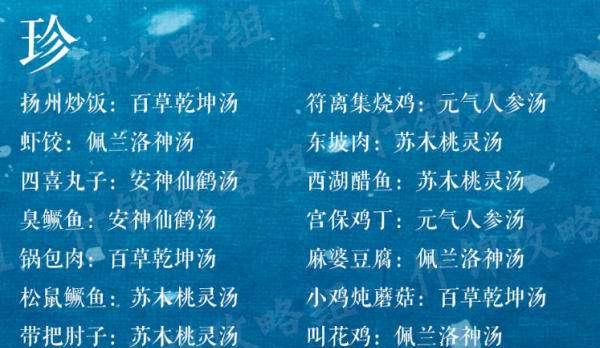 珍
扬州炒饭：百草乾坤汤
符离集烧鸡：元气人参汤
虾饺：佩兰洛神汤
东坡肉：苏木桃灵汤
四喜丸子：安神仙鹤汤
西湖醋鱼：苏木桃灵汤
臭鳜鱼：安神仙鹤汤
宫保鸡丁：元气人参汤
锅包肉：百草乾坤汤
麻婆豆腐：佩兰洛神汤
松鼠鳜鱼：苏木桃灵汤
小鸡炖蘑菇：百草乾坤汤
带把肘子：苏木桃灵汤
叫花鸡：佩兰洛神汤